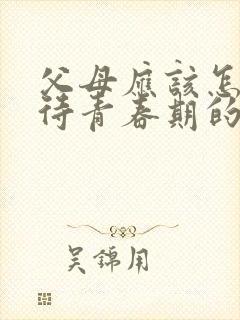 父母應該怎
待青春期的
吳錦用